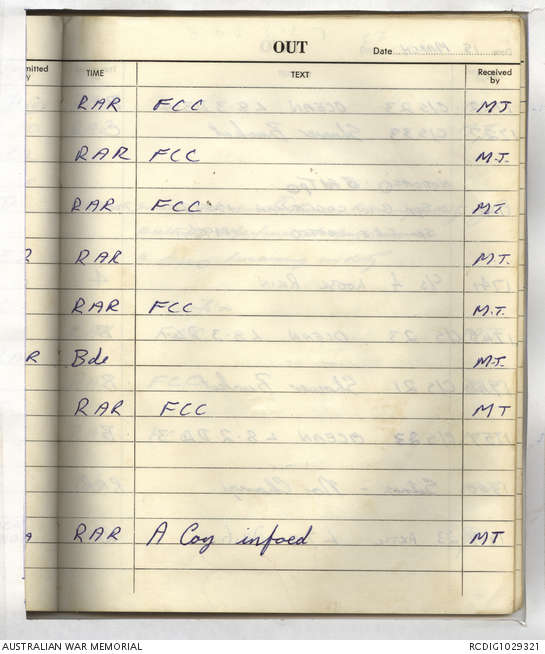 OUT
Date
mitted TIME TEXT Received
y by
RAR FCC MT
RAR FCC M.T.
RAR FCC MT.
R RAR MT.
RAR FCC M.T.
R Bde M.T.
RAR FCC MT
RAR A Coy infoed MT
AUSTRALIAN WAR MEMORIAL RCDIG1029321